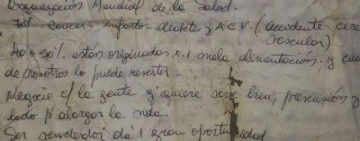 Organización Mundial de la Salud.
cancer - infarto - diabetes y A C V. (accidente cere
vascular)
40 o 50% estan originados x 1 mala alimentacion. y cua
de nosotros lo puede revertir.
Negocio c/ la gente q' quiere estar bien, prevension y
lado p' alargar la vida.
Ser vendedor da 1 gran oportunidad